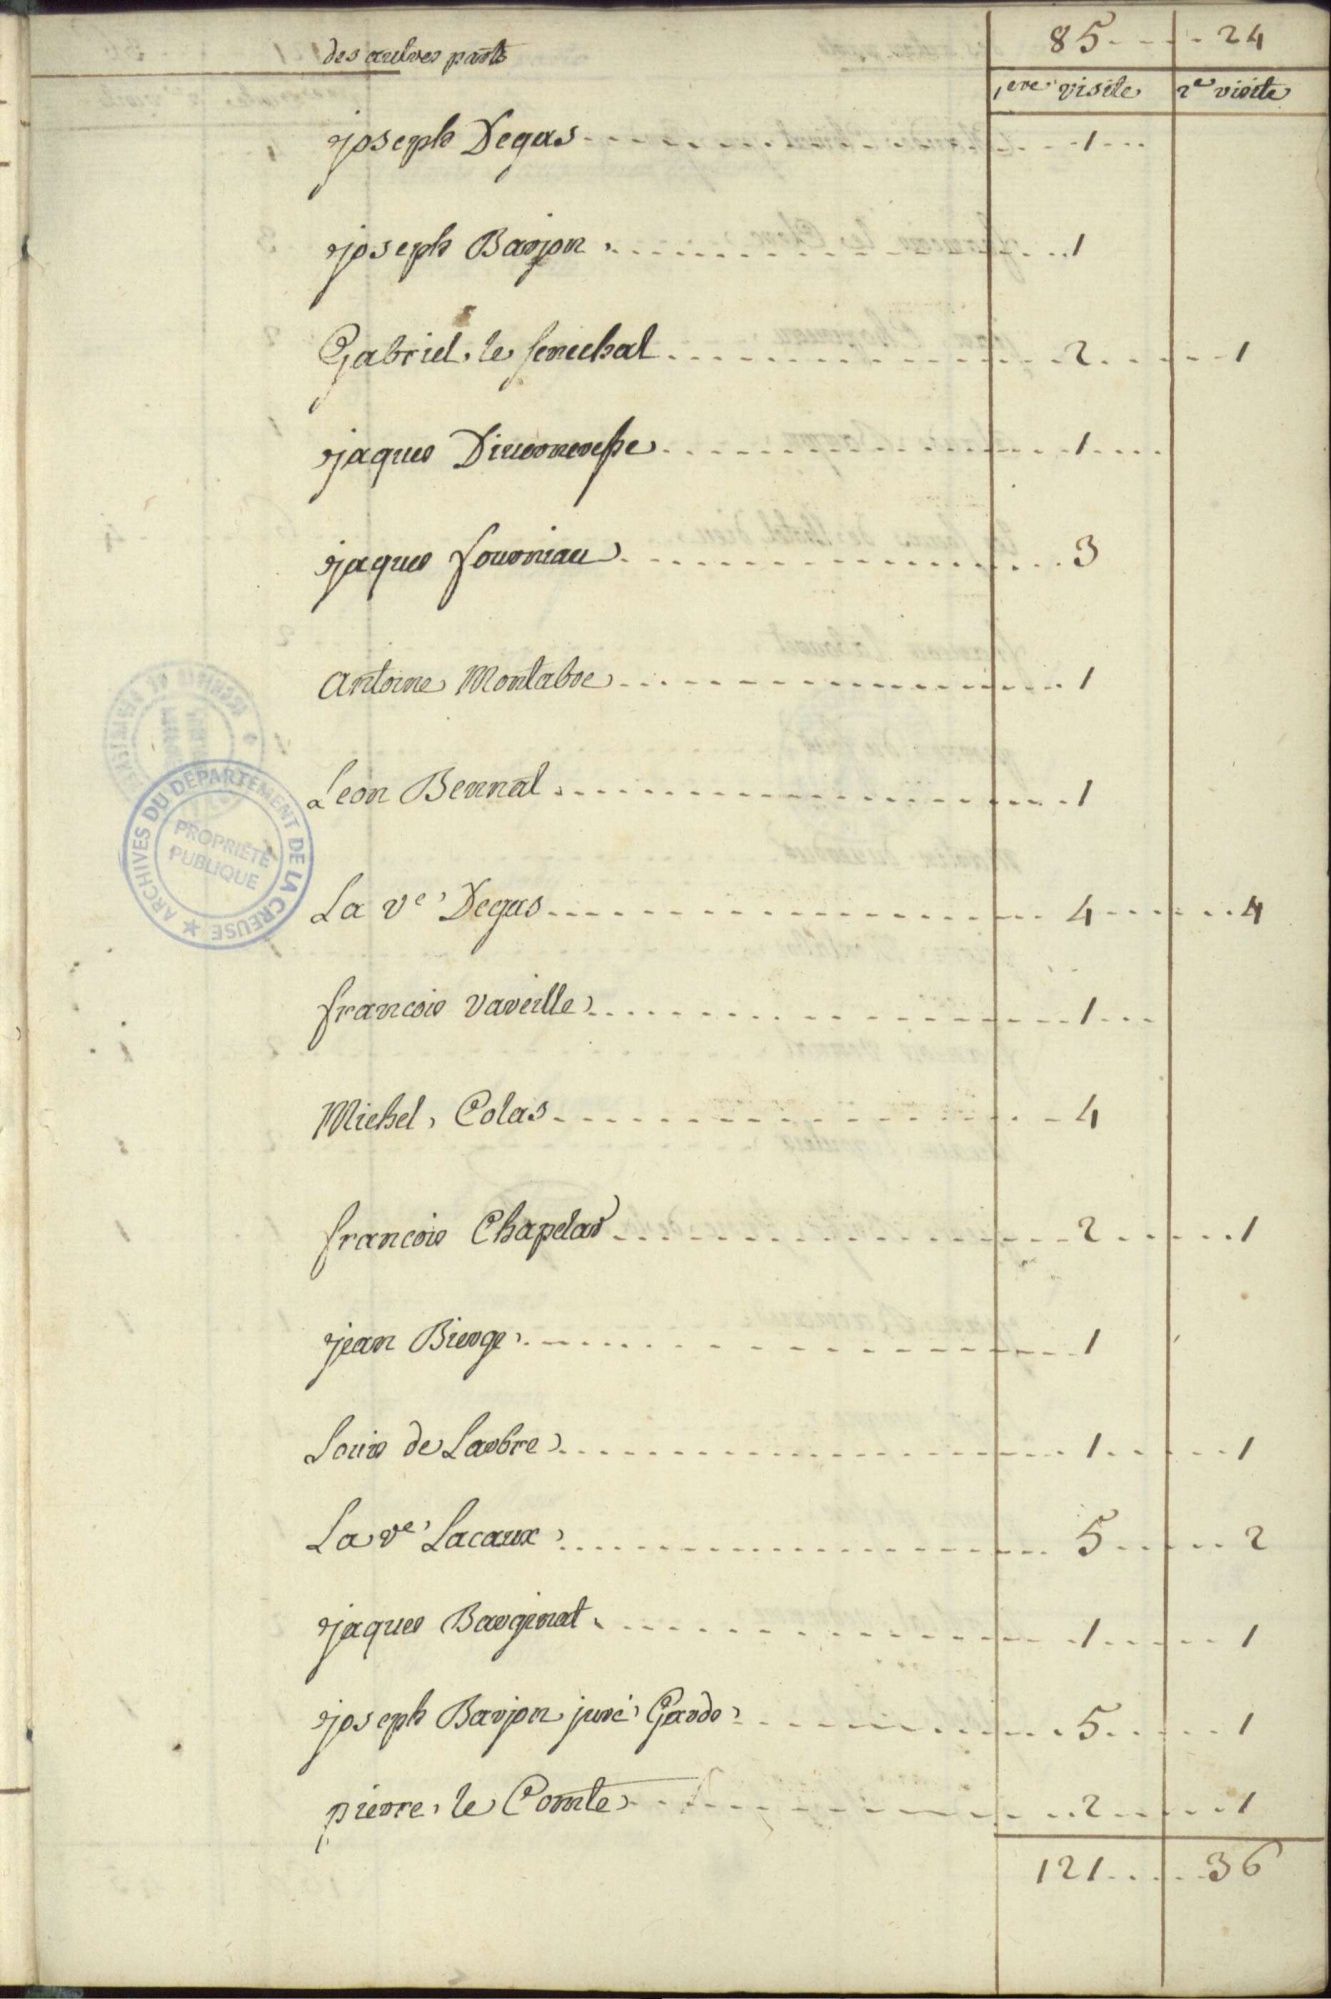 85 24
des autres parts
1ere visite 2e visite
joseph Degas 1
joseph Barjon 1
Gabriel le senechal 2 1
jaques 1
jaques fourniau 3
antoine Montabre 1
Leon Bennat 1
La ve Degas 4 4
francois vaveille 1
Michel Colas 4
francois Chapelas 2 1
jean Bierge 1
Louis de Larbre 1 1
La ve Lacaux 5 2
jaques Barginat 1 1
joseph Barjon juré Garde 5 1
pierre le Comte 2 1
121 36
ARCHIVES DU DÉPARTEMENT DE LA CREUSE
PROPRIÉTÉ
PUBLIQUE